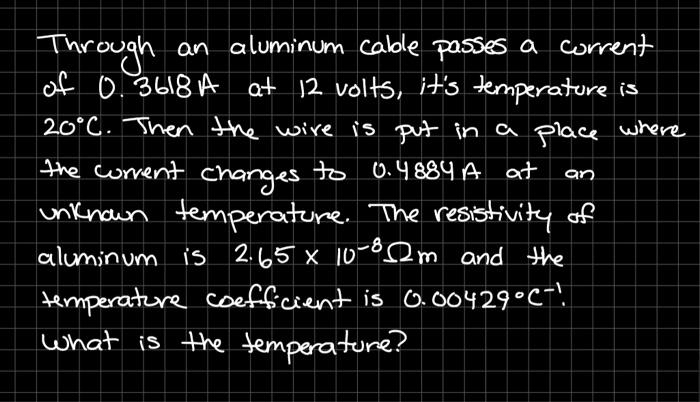 Through an aluminum cable passes a current
of 0.3618A at 12 volts, it's temperature is
20°C. Then the wire is put in a place where
the current changes to 0.4884A at an
unknown temperature. The resistivity of
aluminum is 2.65 x 10⁻⁸Ωm and the
temperature coefficient is 0.00429°C⁻¹.
What is the temperature?